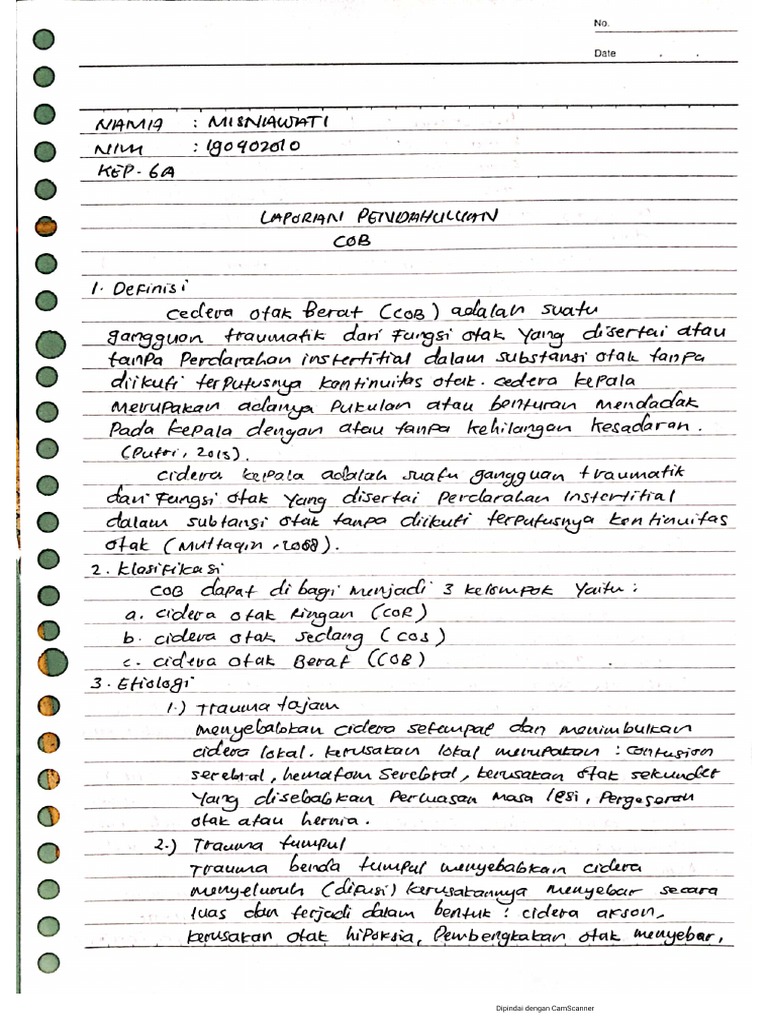 No.
Date . .
NAMA : MISNIAWATI
NIM : 190902010
KEP. 6A
LAPORAN PENDAHULUAN
COB
1. Definisi
cedera otak Berat (COB) adalah suatu
gangguan traumatik dari Fungsi otak Yang disertai atau
tanpa Perdarahan instertitial dalam substansi otak tanpa
diikuti terputusnya kontinuitas otak. cedera kepala
Merupakan adanya Pukulan atau benturan mendadak
Pada kepala dengan atau tanpa kehilangan kesadaran.
(Putri, 2015).
cidera kepala adalah suatu gangguan traumatik
dari Fungsi otak Yang disertai Perdarahan Instertitial
dalam subtansi otak tanpa diikuti terputusnya kontinuitas
otak (Muttaqin, 2008).
2. Klasifikasi
COB dapat di bagi Menjadi 3 kelompok Yaitu :
a. cidera otak Ringan (COR)
b. cidera otak Sedang (COS)
c. cidera otak Berat (COB)
3. Etiologi
1.) Trauma tajam
Menyebabkan cidera setempat dan menimbulkan
cidera lokal. kerusakan lokal merupakan : contusion
serebral, hematom Serebral, kerusakan otak sekunder
Yang disebabkan Perluasan Masa lesi, Pergeseran
otak atau hernia.
2.) Trauma tumpul
Trauma benda tumpul menyebabkan cidera
menyeluruh (difusi) kerusakannya menyebar secara
luas dan terjadi dalam bentuk : cidera akson,
kerusakan otak hipoksia, Pembengkakan otak menyebar,
Dipindai dengan CamScanner